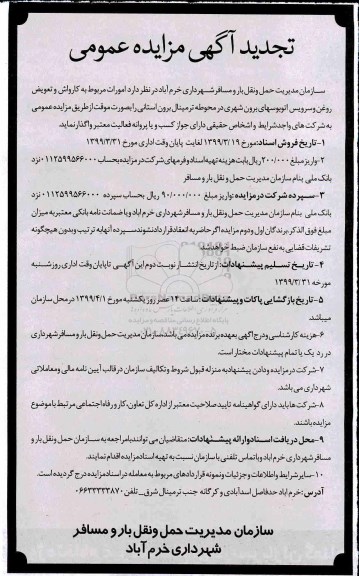 تجدید آگهی مزایده عمومی
سازمان مدیریت حمل ونقل بار و مسافر شهرداری خرم آباد در نظر دارد امورات مربوط به کارواش و تعویض
روغن وسرویس اتوبوسهای برون شهری در محوطه ترمینال برون استانی را بصورت موقت از طریق مزایده عمومی
به شرکت های واجد شرایط و اشخاص حقیقی دارای جواز کسب و یا پروانه فعالیت معتبر واگذار نماید.
۱-تاریخ فروش اسناد:مورخ ۱۳۹۹/۳/۱۹ لغایت پایان وقت اداری مورخ ۱۳۹۹/۳/۳۱
۲-واریز مبلغ ۲۰۰/۰۰۰ ریال بابت هزینه تهیه اسناد و فرمهای شرکت در مزایده بحساب ۰۱۱۲۵۹۹۵۶۶۰۰۰ نزد
بانک ملی بنام سازمان مدیریت حمل و نقل بار و مسافر
۳-سپرده شرکت در مزایده :واریز مبلغ ۹۰/۰۰۰/۰۰۰ ریال بحساب سپرده ۰۱۱۲۵۹۹۵۶۶۰۰۰ نزد
بانک ملی بنام سازمان مدیریت حمل و نقل بار و مسافر شهرداری خرم آباد و یا ضمانت نامه بانکی معتبر به میزان
مبلغ فوق الذکر.برندگان اول و دوم مزایده اگر حاضر به انعقاد قرارداد نشوند سپرده آنها به ترتیب و بدون هیچگونه
تشریفات قضایی به نفع سازمان ضبط خواهد شد
۴-تاریخ تسلیم پیشنهادات:از تاریخ انتشار نوبت دوم این آگهی تا پایان وقت اداری روز شنبه
مورخه ۱۳۹۹/۳/۳۱
۵-تاریخ بازگشایی پاکات و پیشنهادات:ساعت ۱۴ عصر روز یکشنبه مورخ ۱۳۹۹/۴/۱ در محل سازمان
میباشد
۶-هزینه کارشناسی و درج آگهی بعهده برنده مزایده می باشد.سازمان مدیریت حمل ونقل بار و مسافر شهرداری
در رد یک یا تمام پیشنهادات مختار است.
۷-شرکت در مزایده و دادن پیشنهاد به منزله قبول شروط و تکالیف سازمان در قالب آیین نامه مالی و معاملاتی
شهرداری می باشد.
۸-شرکت ها باید دارای گواهینامه تایید صلاحیت معتبر از اداره کل تعاون، کار و رفاه اجتماعی مرتبط با موضوع
مزایده باشند.
۹-محل دریافت اسناد و ارائه پیشنهادات: متقاضیان می توانند با مراجعه به سازمان حمل ونقل بار و
مسافر شهرداری خرم آباد و یا تماس تلفنی با سازمان نسبت به تهیه اسناد مزایده اقدام نمایند.
۱۰-سایر شرایط و اطلاعات و جزئیات و نمونه قراردادهای مربوط به معامله در اسناد مزایده درج گردیده است.
آدرس:خرم آباد حدفاصل اسدآبادی و کرگانه جنب ترمینال شرق_تلفن ۰۶۶۳۳۳۳۳۸۷۰
سازمان مدیریت حمل ونقل بار و مسافر
شهرداری خرم آباد